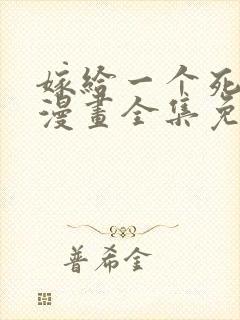 嫁给一个死
漫畫全集免
普希金